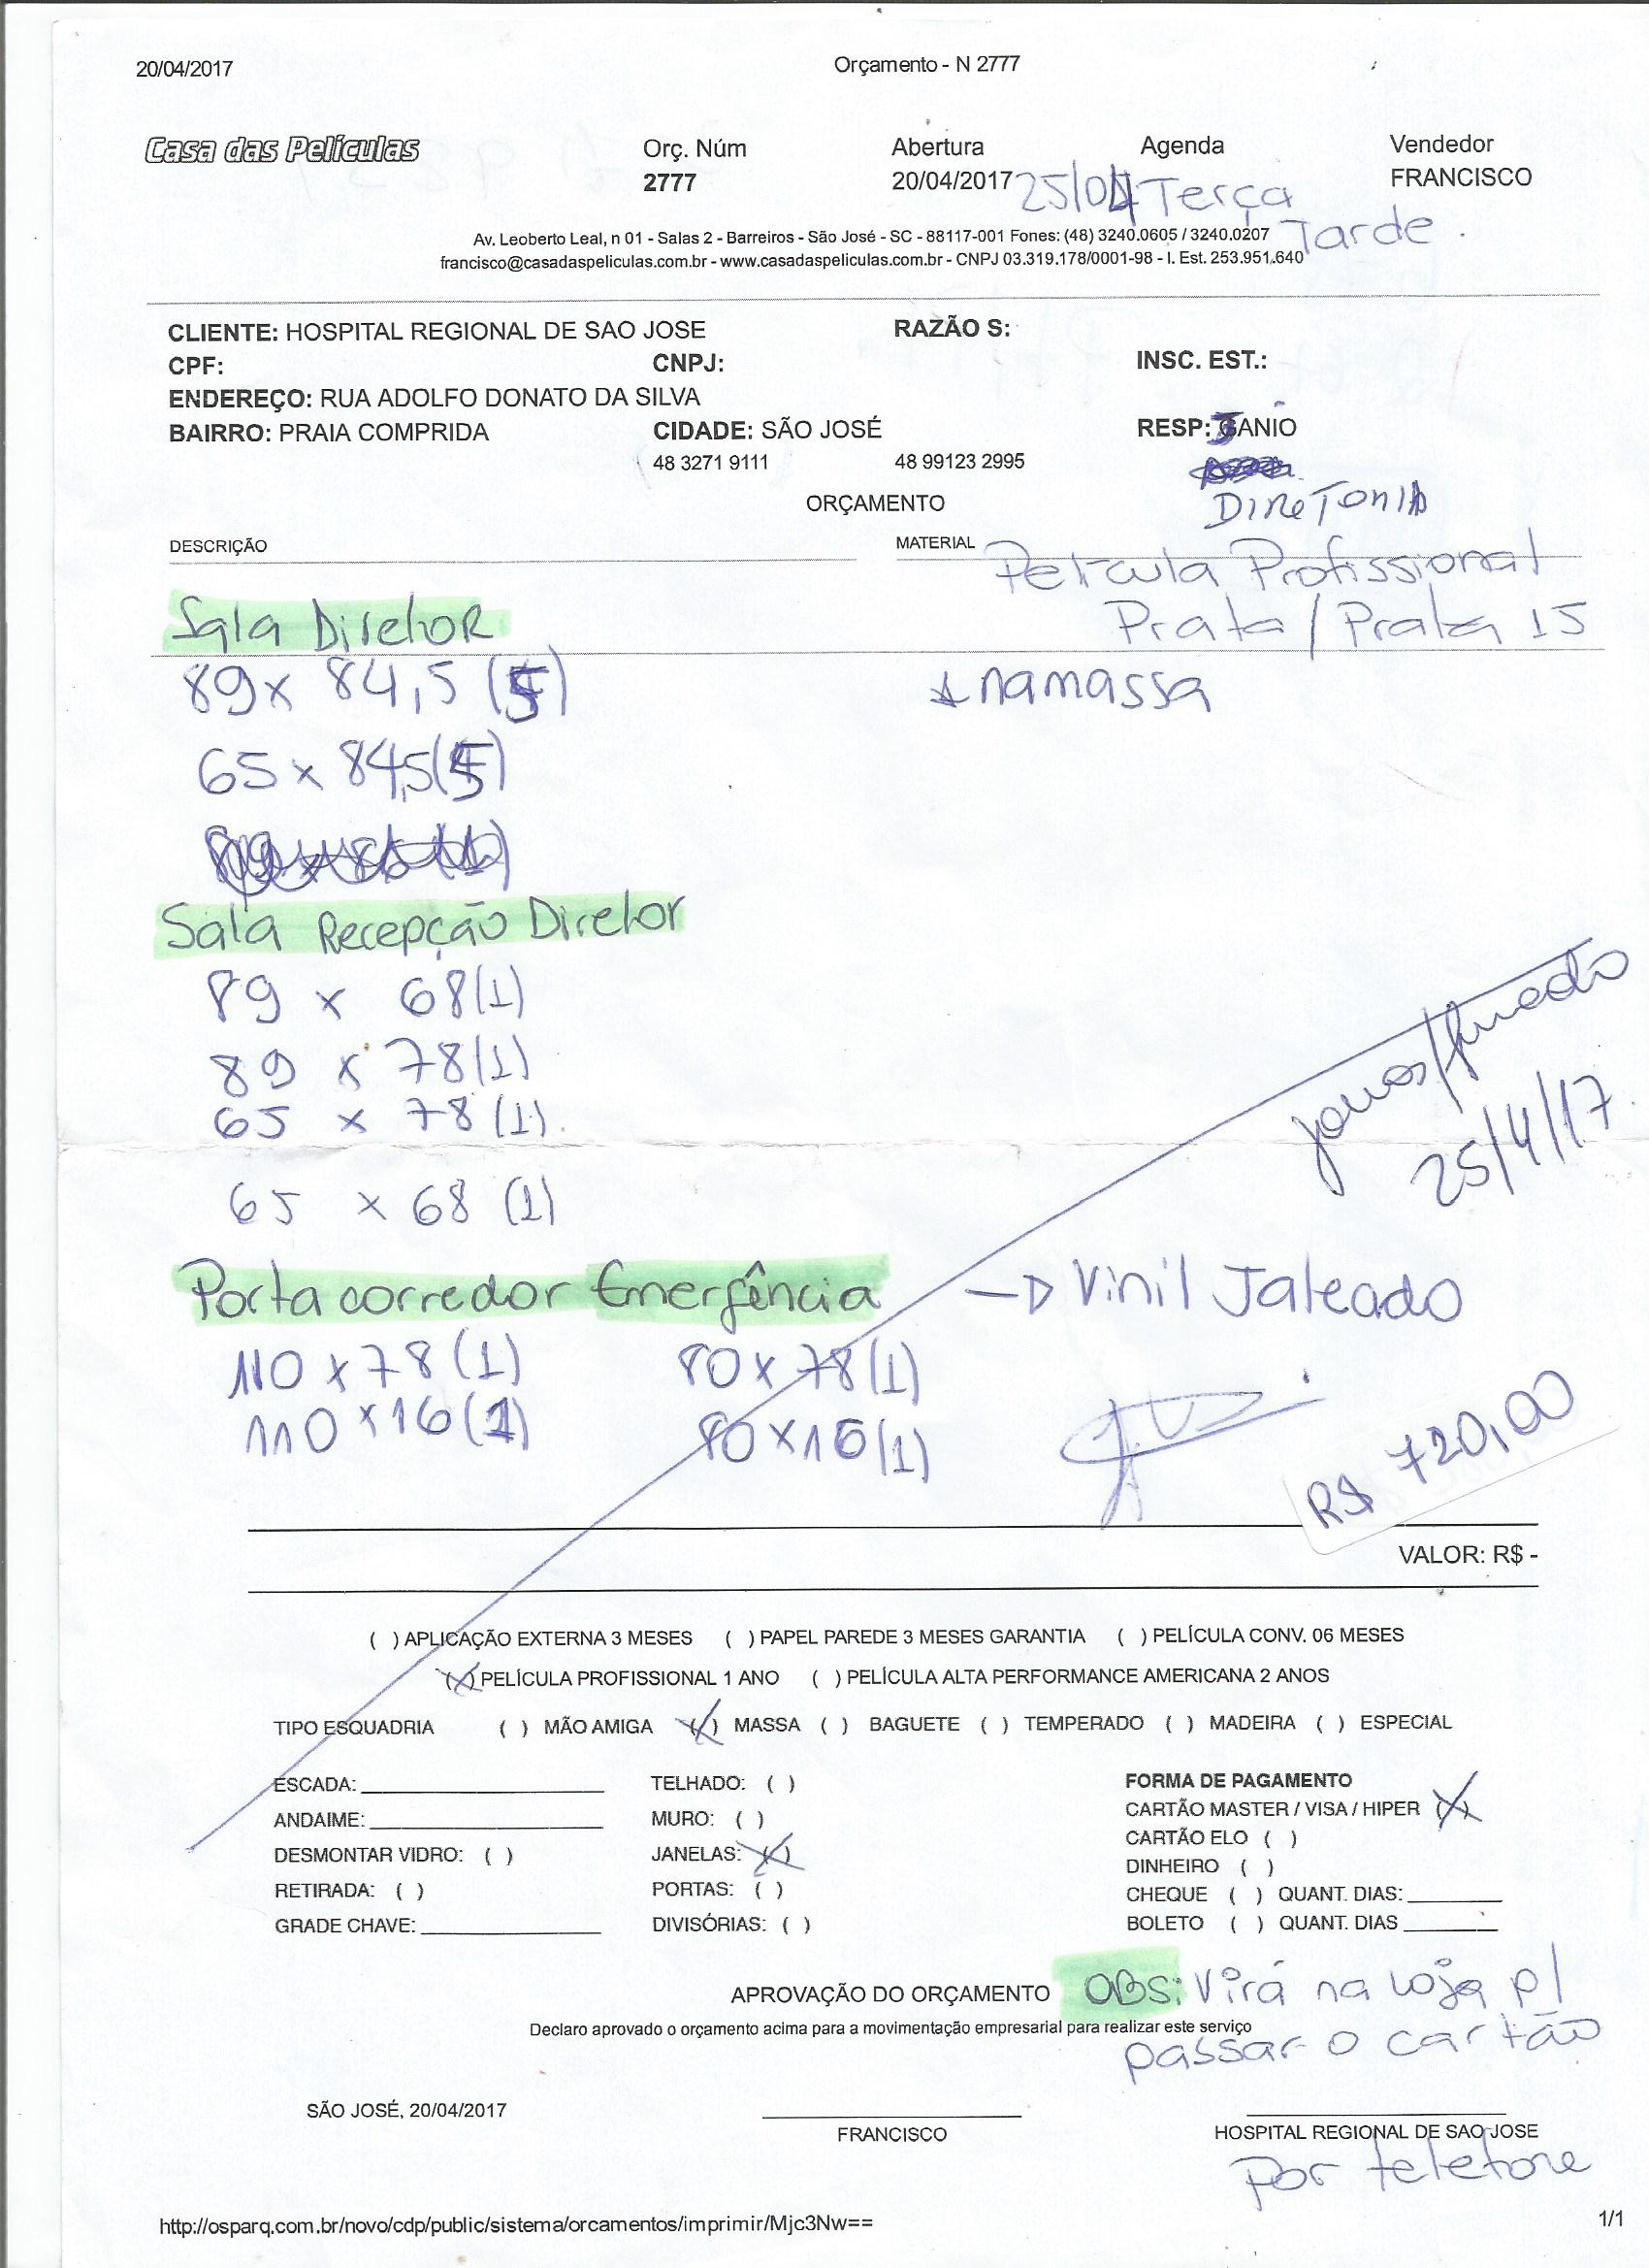 20/04/2017 Orçamento - N 2777
Casa das Películas Orç. Núm Abertura Agenda Vendedor
2777 20/04/2017 25/04 Terça FRANCISCO
Tarde.
Av. Leoberto Leal, n 01 - Salas 2 - Barreiros - São José - SC - 88117-001 Fones: (48) 3240.0605 / 3240.0207
francisco@casadaspeliculas.com.br - www.casadaspeliculas.com.br - CNPJ 03.319.178/0001-98 - I. Est. 253.951.640
CLIENTE: HOSPITAL REGIONAL DE SAO JOSE RAZÃO S:
CPF: CNPJ: INSC. EST.:
ENDEREÇO: RUA ADOLFO DONATO DA SILVA
BAIRRO: PRAIA COMPRIDA CIDADE: SÃO JOSÉ RESP: JANIO
48 3271 9111 48 99123 2995
ORÇAMENTO DIRETORIA
DESCRIÇÃO MATERIAL
Película Profissional
Sala Diretor Prata / Prata 15
89 x 84,5 (5) na massa
65 x 84,5 (5)
Sala Recepção Diretor
89 x 68 (1)
89 x 78 (1)
65 x 78 (1)
25/4/17.
65 x 68 (1)
Porta corredor Emergência → Vinil Jateado
110 x 78 (1) 80 x 78 (1)
110 x 16 (1) 80 x 16 (1)
R$ 720,00
VALOR: R$ -
( ) APLICAÇÃO EXTERNA 3 MESES ( ) PAPEL PAREDE 3 MESES GARANTIA ( ) PELÍCULA CONV. 06 MESES
(X) PELÍCULA PROFISSIONAL 1 ANO ( ) PELÍCULA ALTA PERFORMANCE AMERICANA 2 ANOS
TIPO ESQUADRIA ( ) MÃO AMIGA (X) MASSA ( ) BAGUETE ( ) TEMPERADO ( ) MADEIRA ( ) ESPECIAL
ESCADA: TELHADO: ( ) FORMA DE PAGAMENTO
ANDAIME: MURO: ( ) CARTÃO MASTER / VISA / HIPER (X)
DESMONTAR VIDRO: ( ) JANELAS: (X) CARTÃO ELO ( )
DINHEIRO ( )
RETIRADA: ( ) PORTAS: ( ) CHEQUE ( ) QUANT. DIAS:
GRADE CHAVE: DIVISÓRIAS: ( ) BOLETO ( ) QUANT. DIAS
APROVAÇÃO DO ORÇAMENTO OBS: Virá na loja p/
Declaro aprovado o orçamento acima para a movimentação empresarial para realizar este serviço
passar o cartão
SÃO JOSÉ, 20/04/2017
FRANCISCO HOSPITAL REGIONAL DE SAO JOSE
Por telefone
http://osparq.com.br/novo/cdp/public/sistema/orcamentos/imprimir/Mjc3Nw== 1/1